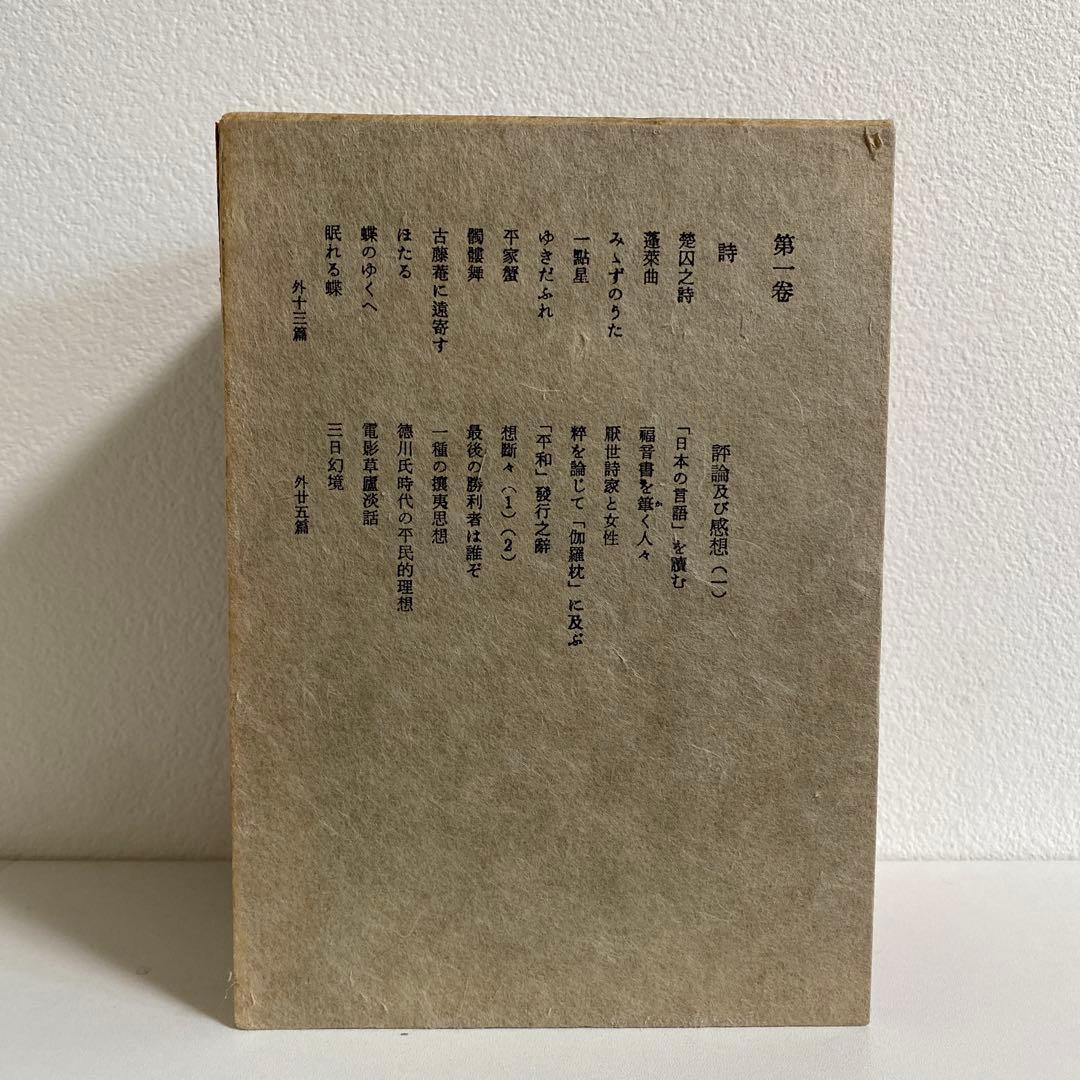 第一卷
詩
楚囚之詩
蓬萊曲
みゝずのうた
一點星
ゆきだふれ
平家蟹
髑髏舞
古藤菴に遠寄す
ほたる
蝶のゆくへ
眠れる蝶
外十三篇
評論及び感想（一）
「日本の言語」を讀む
福音書を筆く人々
か
厭世詩家と女性
粹を論じて「伽羅枕」に及ぶ
「平和」發行之辭
想斷々（1）（2）
最後の勝利者は誰ぞ
一種の攘夷思想
德川氏時代の平民的理想
電影草廬淡話
三日幻境
外廿五篇